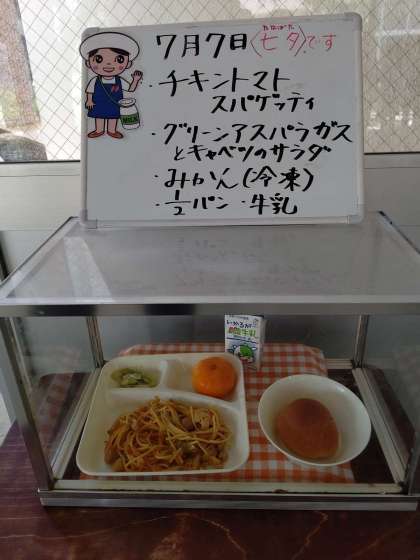 たなばた
7月7日〈七夕〉です
・チキントマト
スパゲッティ
・グリーンアスパラガス
とキャベツのサラダ
・みかん(冷凍)
・½パン・牛乳
MILK
いかるが
牛乳